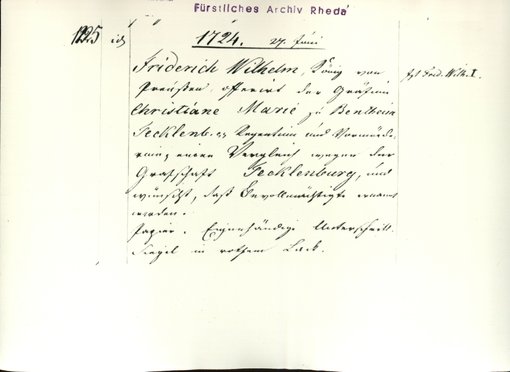 Fürstliches Archiv Rheda
1225
1724. 27. Juni
Friderich Wilhelm, König von
Preußen, offerirt der Gräfin
Christiane Marie zu Bentheim
Tecklenb. Regentin und Vormünde
rin, einen Vergleich wegen der
Grafschaft Tecklenburg, und
wünscht, daß Bevollmächtigte ernannt
werden.
Papier. Eigenhändige Unterschrift.
Siegel in rothem Lack.
Wilh. I.